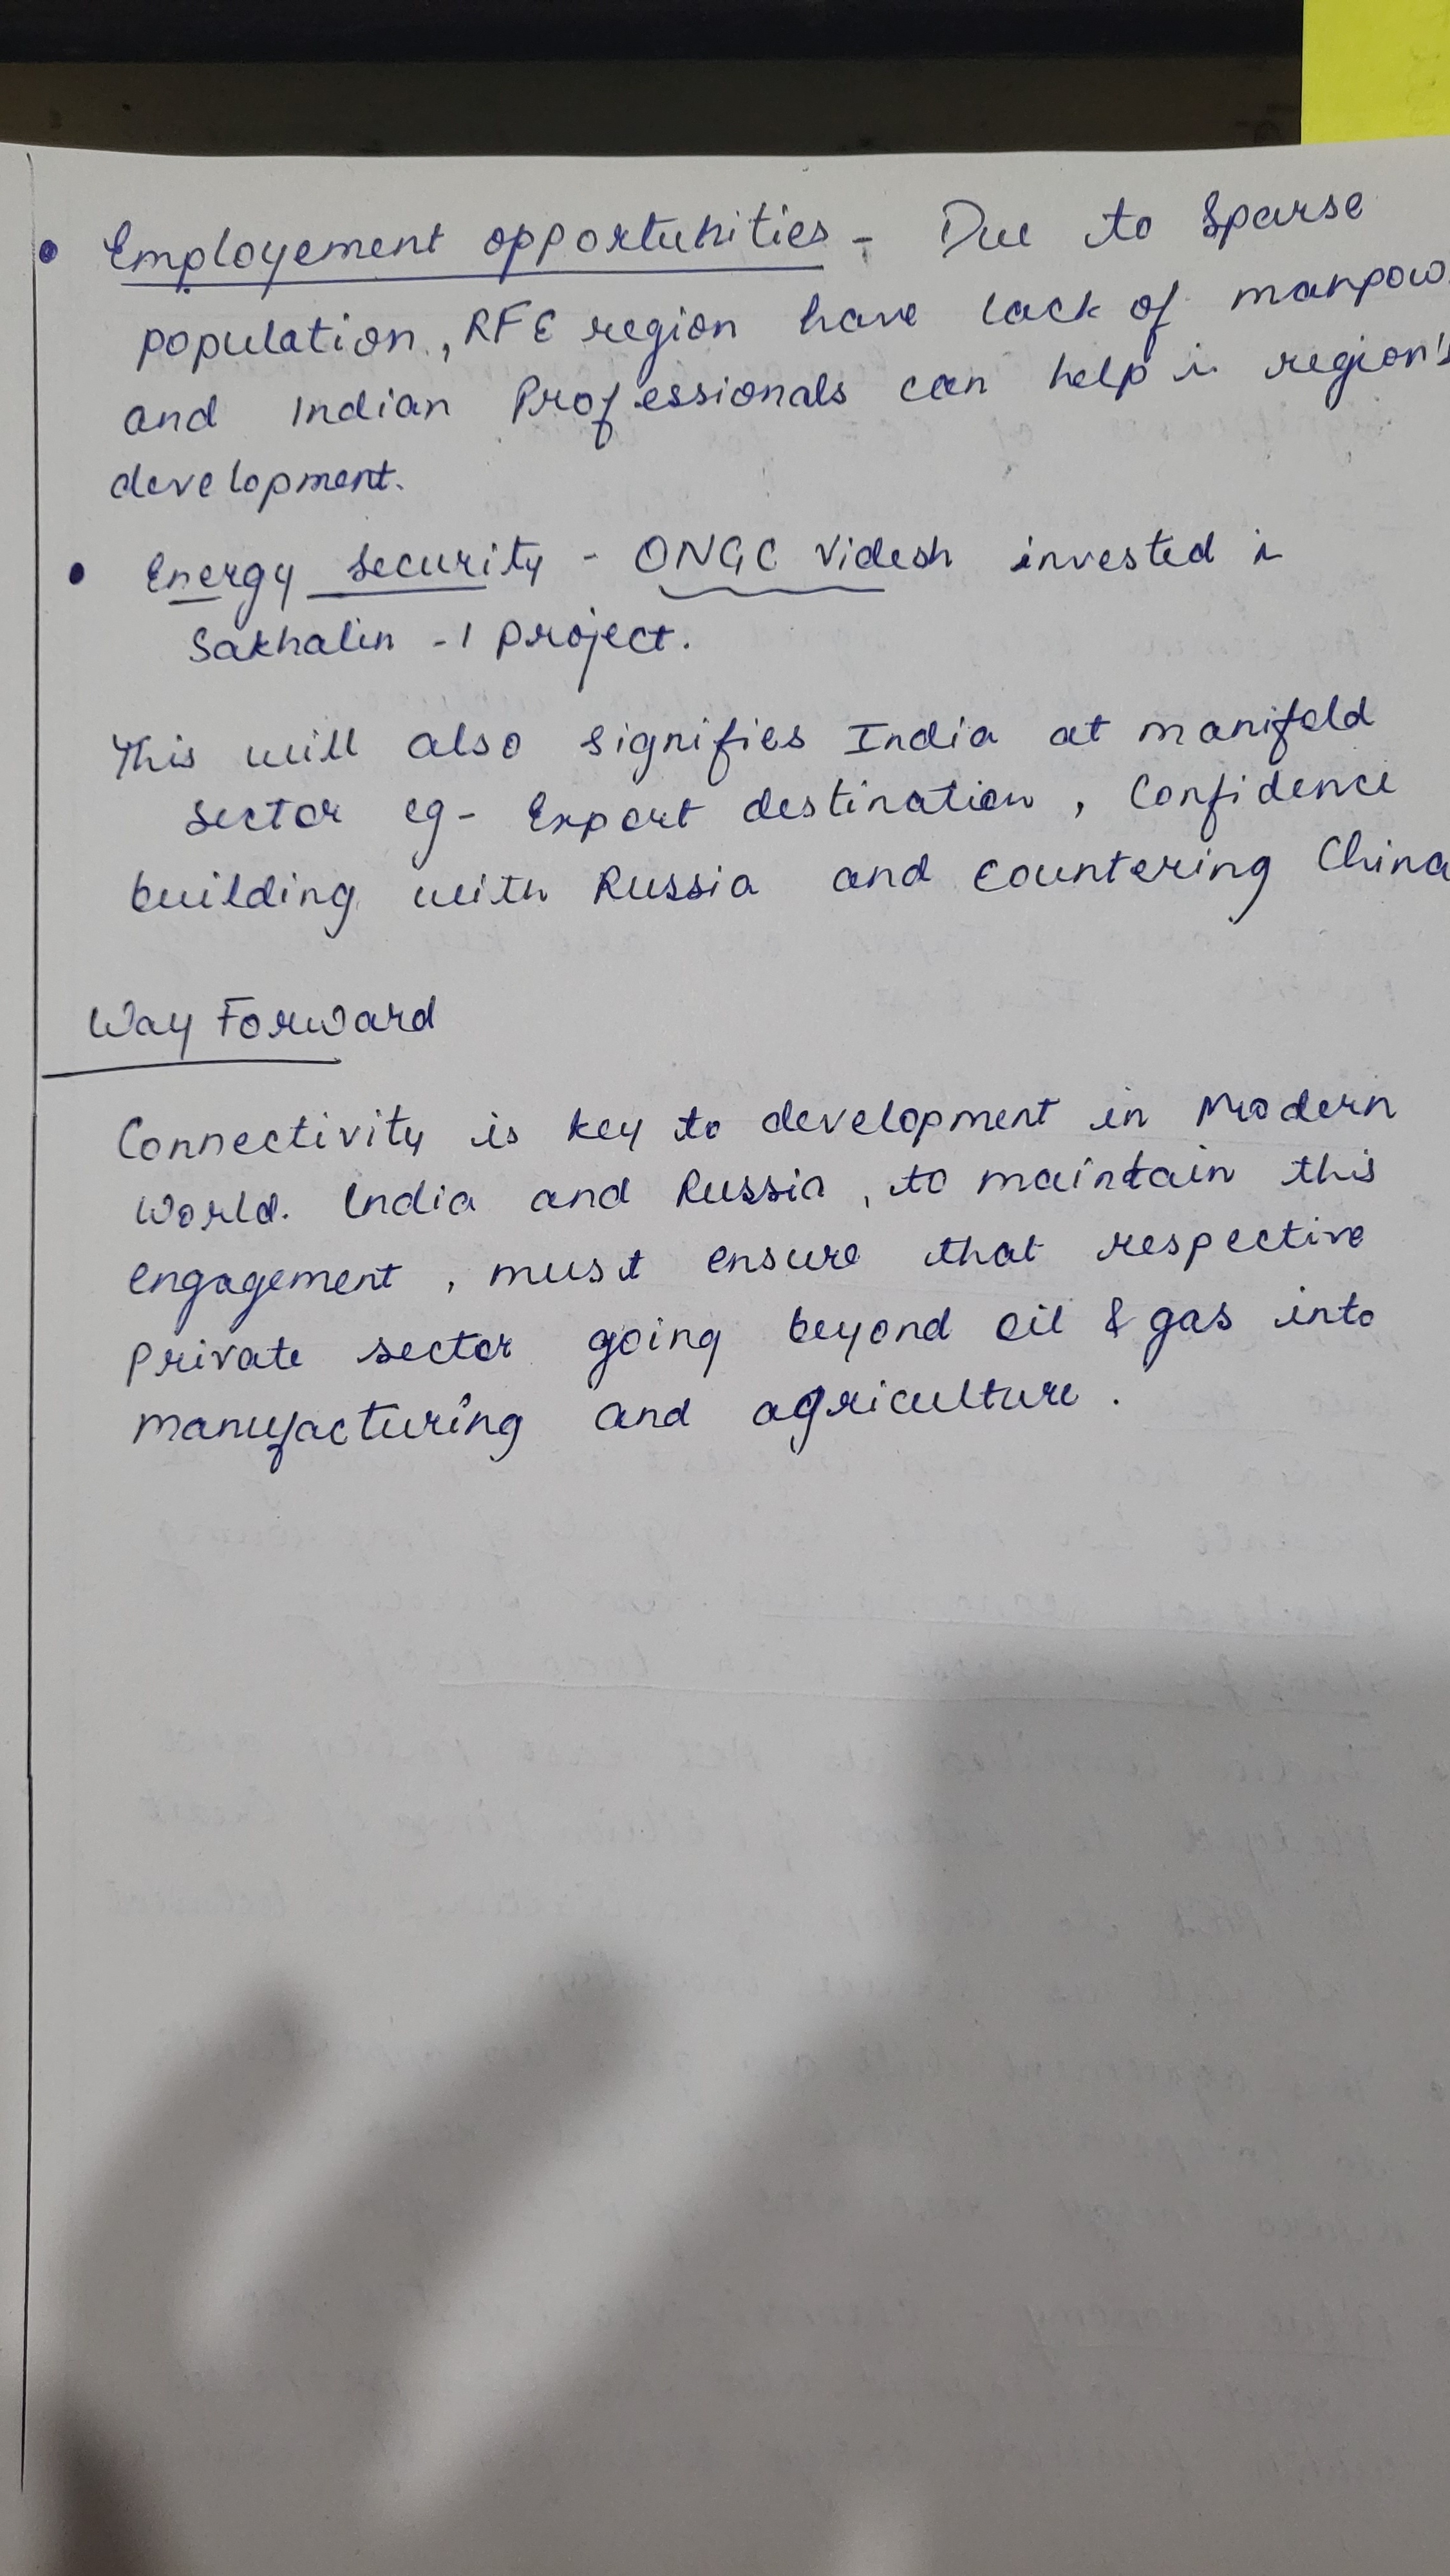 • Employement opportunities - Due to sparse
population, RFE region have lack of manpow
and Indian Professionals can help in region's
development.
• Energy security - ONGC Videsh invested in
Sakhalin -1 project.
This will also signifies India at manifold
sector eg- Export destination, Confidence
building with Russia and countering China
Way Forward
Connectivity is key to development in Modern
World. India and Russia, to maintain this
engagement, must ensure that respective
private sector going beyond oil & gas into
manufacturing and agriculture.